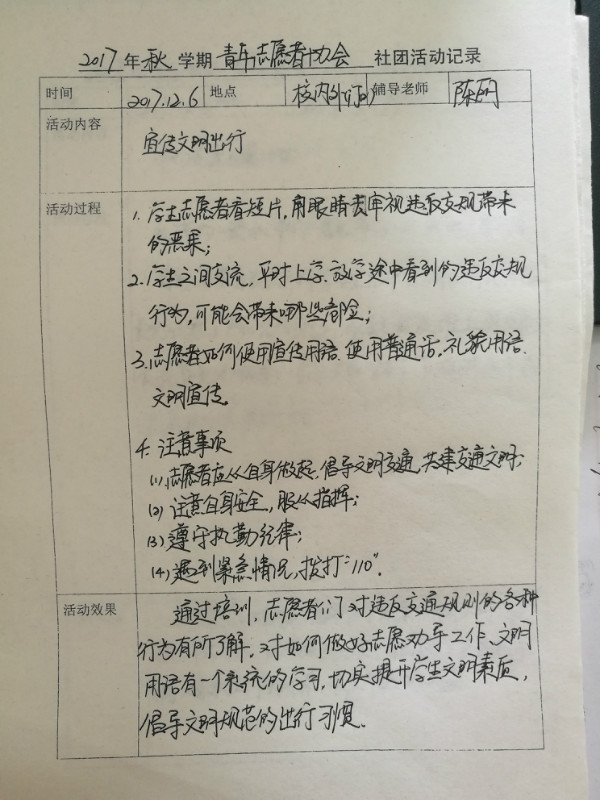 2017年秋学期青年志愿者协会 社团活动记录
时间 2017.12.6 地点 校内外 辅导老师 陈丽
活动内容 宣传文明出行
活动过程 1. 学生志愿者看短片,用眼睛去审视违反交规带来
的恶果;
2. 学生之间交流,平时上学、放学途中看到的违反交规
行为,可能会带来哪些危险;
3. 志愿者如何使用宣传用语、使用普通话,礼貌用语、
文明宣传。
4. 注意事项
(1)、志愿者应从自身做起,倡导文明交通,共建交通文明;
(2) 注意自身安全,服从指挥;
(3) 遵守执勤纪律;
(4) 遇到紧急情况,拨打“110”。
活动效果 通过培训,志愿者们对违反交通规则的各种
行为有所了解,对如何做好志愿劝导工作、文明
用语有一个系统的学习,切实提升学生文明素质,
倡导文明规范的出行习惯。